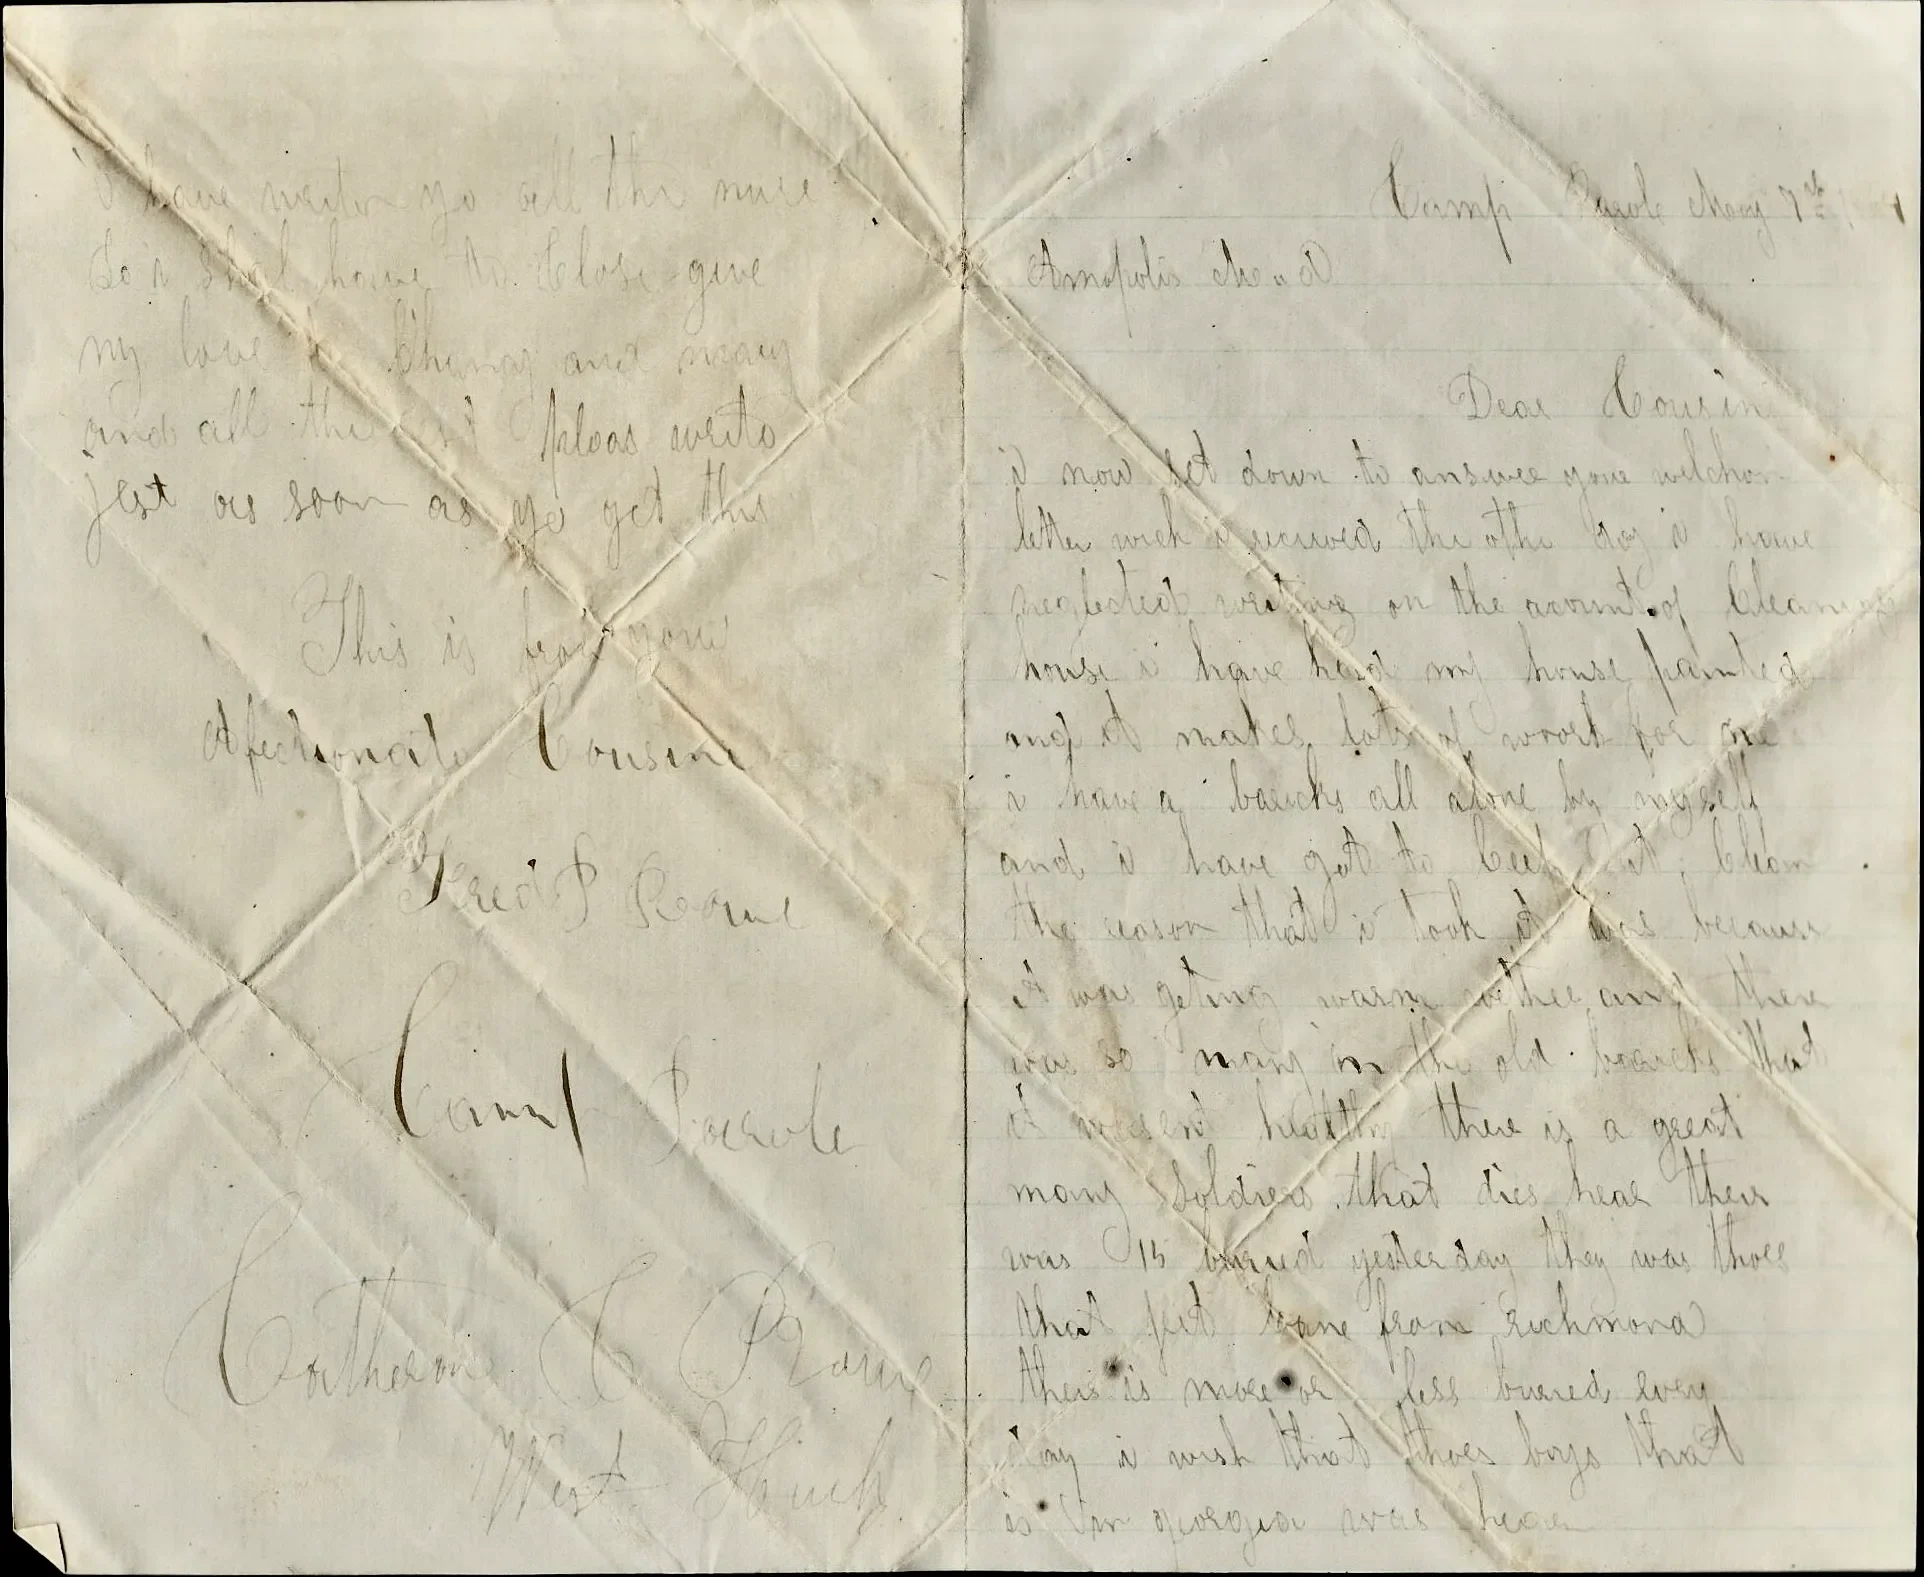 Camp Parole May 7th
Annopolis Me..d
Dear Cousin
i now set down to answer youe welchom
letter wich i received the othe day i have
neglected writing on the acount of Cleaning
house i have haid my house painted
and it makes lots of woork for me
i have a baricks all alone by myself
and i have got to Ceep it Clean
the reason that i took it was because
it was geting warm wether and there
was so many in the old baricks that
it wasent healthy there is a great
many Soldiers that dies hear their
was 15 buried yesterday they was thoes
that jest Came from richmond
their is more or less buried every
day i wish that thoes boys that
is in georgia was hear
i have writen yo all the nuse
So i shal have to Close give
my love to and mary
and all the rest pleas write
jest as soon as yo get this
This is from youre
Afectionate Cousin
Fred P
Camp Parole
Catherone C
West